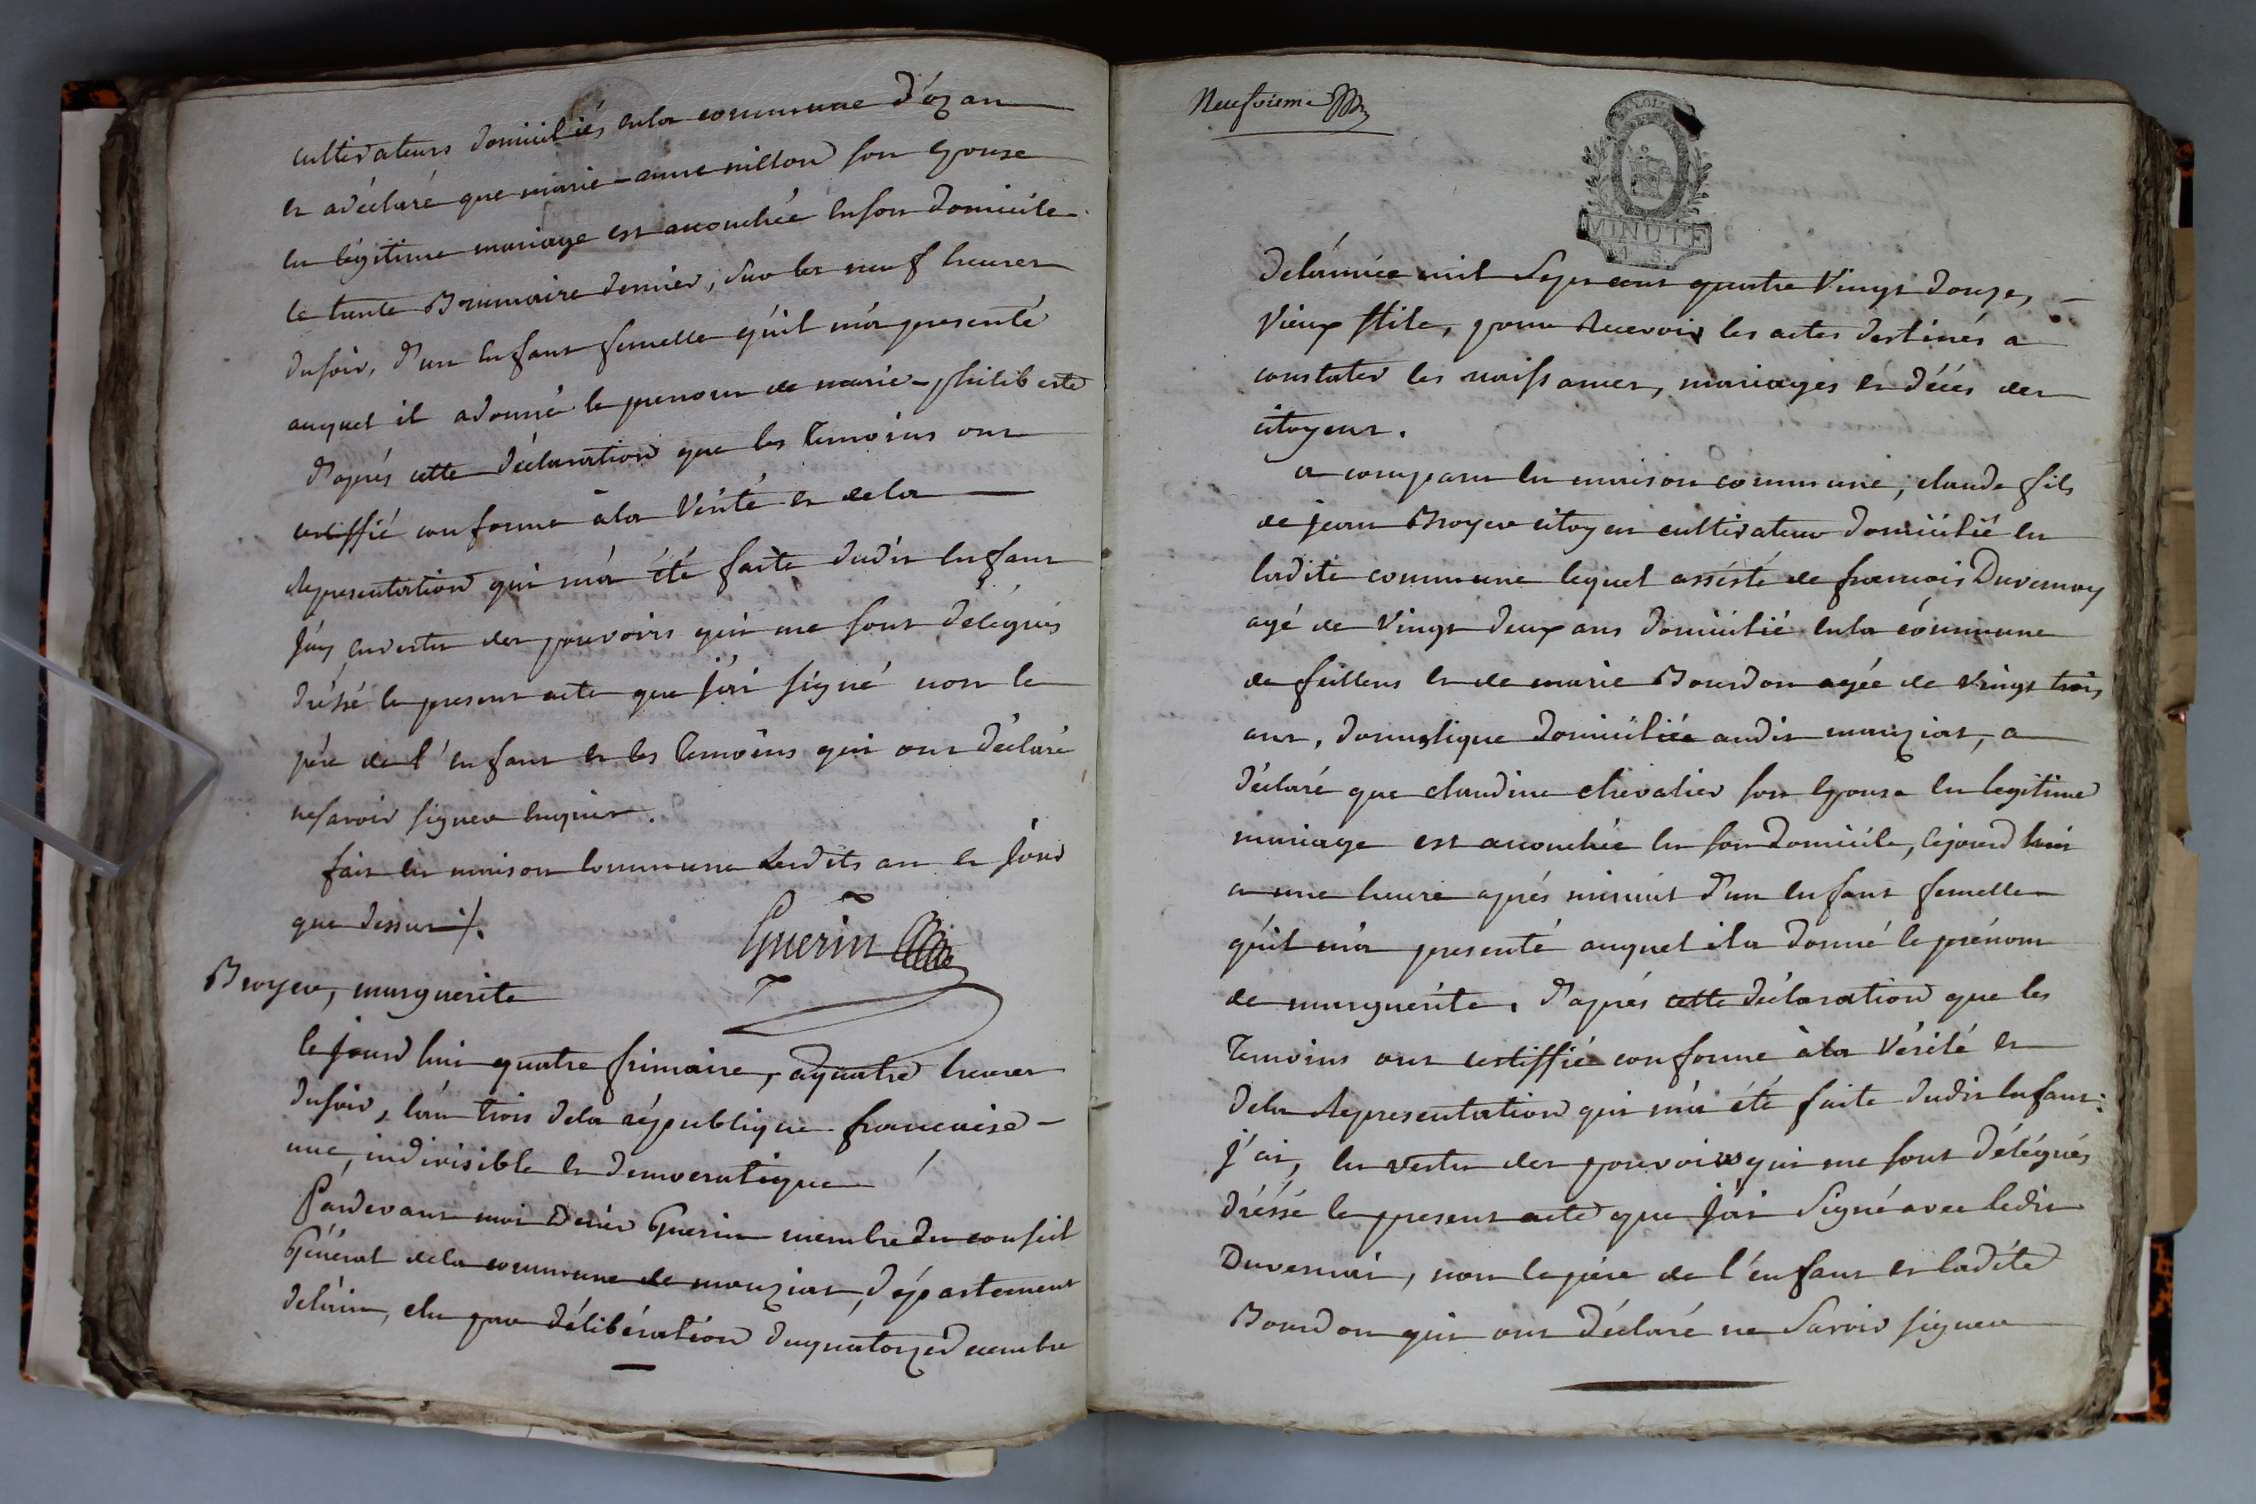 cultivateurs domiciliés en la commune d'ozan
et a déclaré que marie-anne millon son Epouse
en légitime mariage est accouchée en son domicile
le trente Brumaire dernier, sur les neuf heures
du soir, d'un enfant femelle qu'il m'a presenté
auquel il a donné le prenom de marie-philiberte
d'aprés cette déclaration que les Temoins ont
certiffié conforme à la Vérité et de la
Representation qui m'a été faite dudit Enfant
J'ay en vertu des pouvoirs qui me sont délégués
dréssé le present acte que j'ai signé non le
pére de l'enfant et les Temoins qui ont déclaré
ne savoir signer enquis.
fait en maison Commune lesdits an et Jour
que dessus ./.
Guerin
Broyer, marguerite
Cejourd'hui quatre frimaire, a quatre heures
du soir, l'an trois de la république francaise
une, indivisible et democratique
Pardevant moi Denis Guerin membre du conseil
Général de la commune de manziat, département
de l'ain, elu par délibération du quatorze decembre
Neufvieme
MINUTE
de l'année mil Sept cent quatre Vingt douze,
Vieux stile, pour Recevoir les actes destinés a
constater les naissances, mariages et décés des
citoyens.
a comparu en maison commune, claude fils
de jean Broyer citoyen cultivateur domicilié en
ladite commune lequel assisté de francois Duvernay
agé de Vingt deux ans domicilié en la commune
de feillens et de marie Bourdon agée de vingt trois
ans, domestique domiciliée audit manziat, a
déclaré que claudine chevalier son Epouse en legitime
mariage est accouchée en son domicile, cejourd'hui
a une heure aprés minuit d'un enfant femelle
qu'il m'a presenté auquel il a donné le prénom
de marguerite. d'aprés cette déclaration que les
Temoins ont certiffié conforme à la Vérité et
de la Representation qui m'a été faite dudit Enfant:
j'ai, en vertu des pouvoirs qui me sont délégués
dréssé le present acte que j'ai Signé avec ledit
Duvernai, non le pére de l'enfant et ladite
Bourdon qui ont déclaré ne Savoir signer